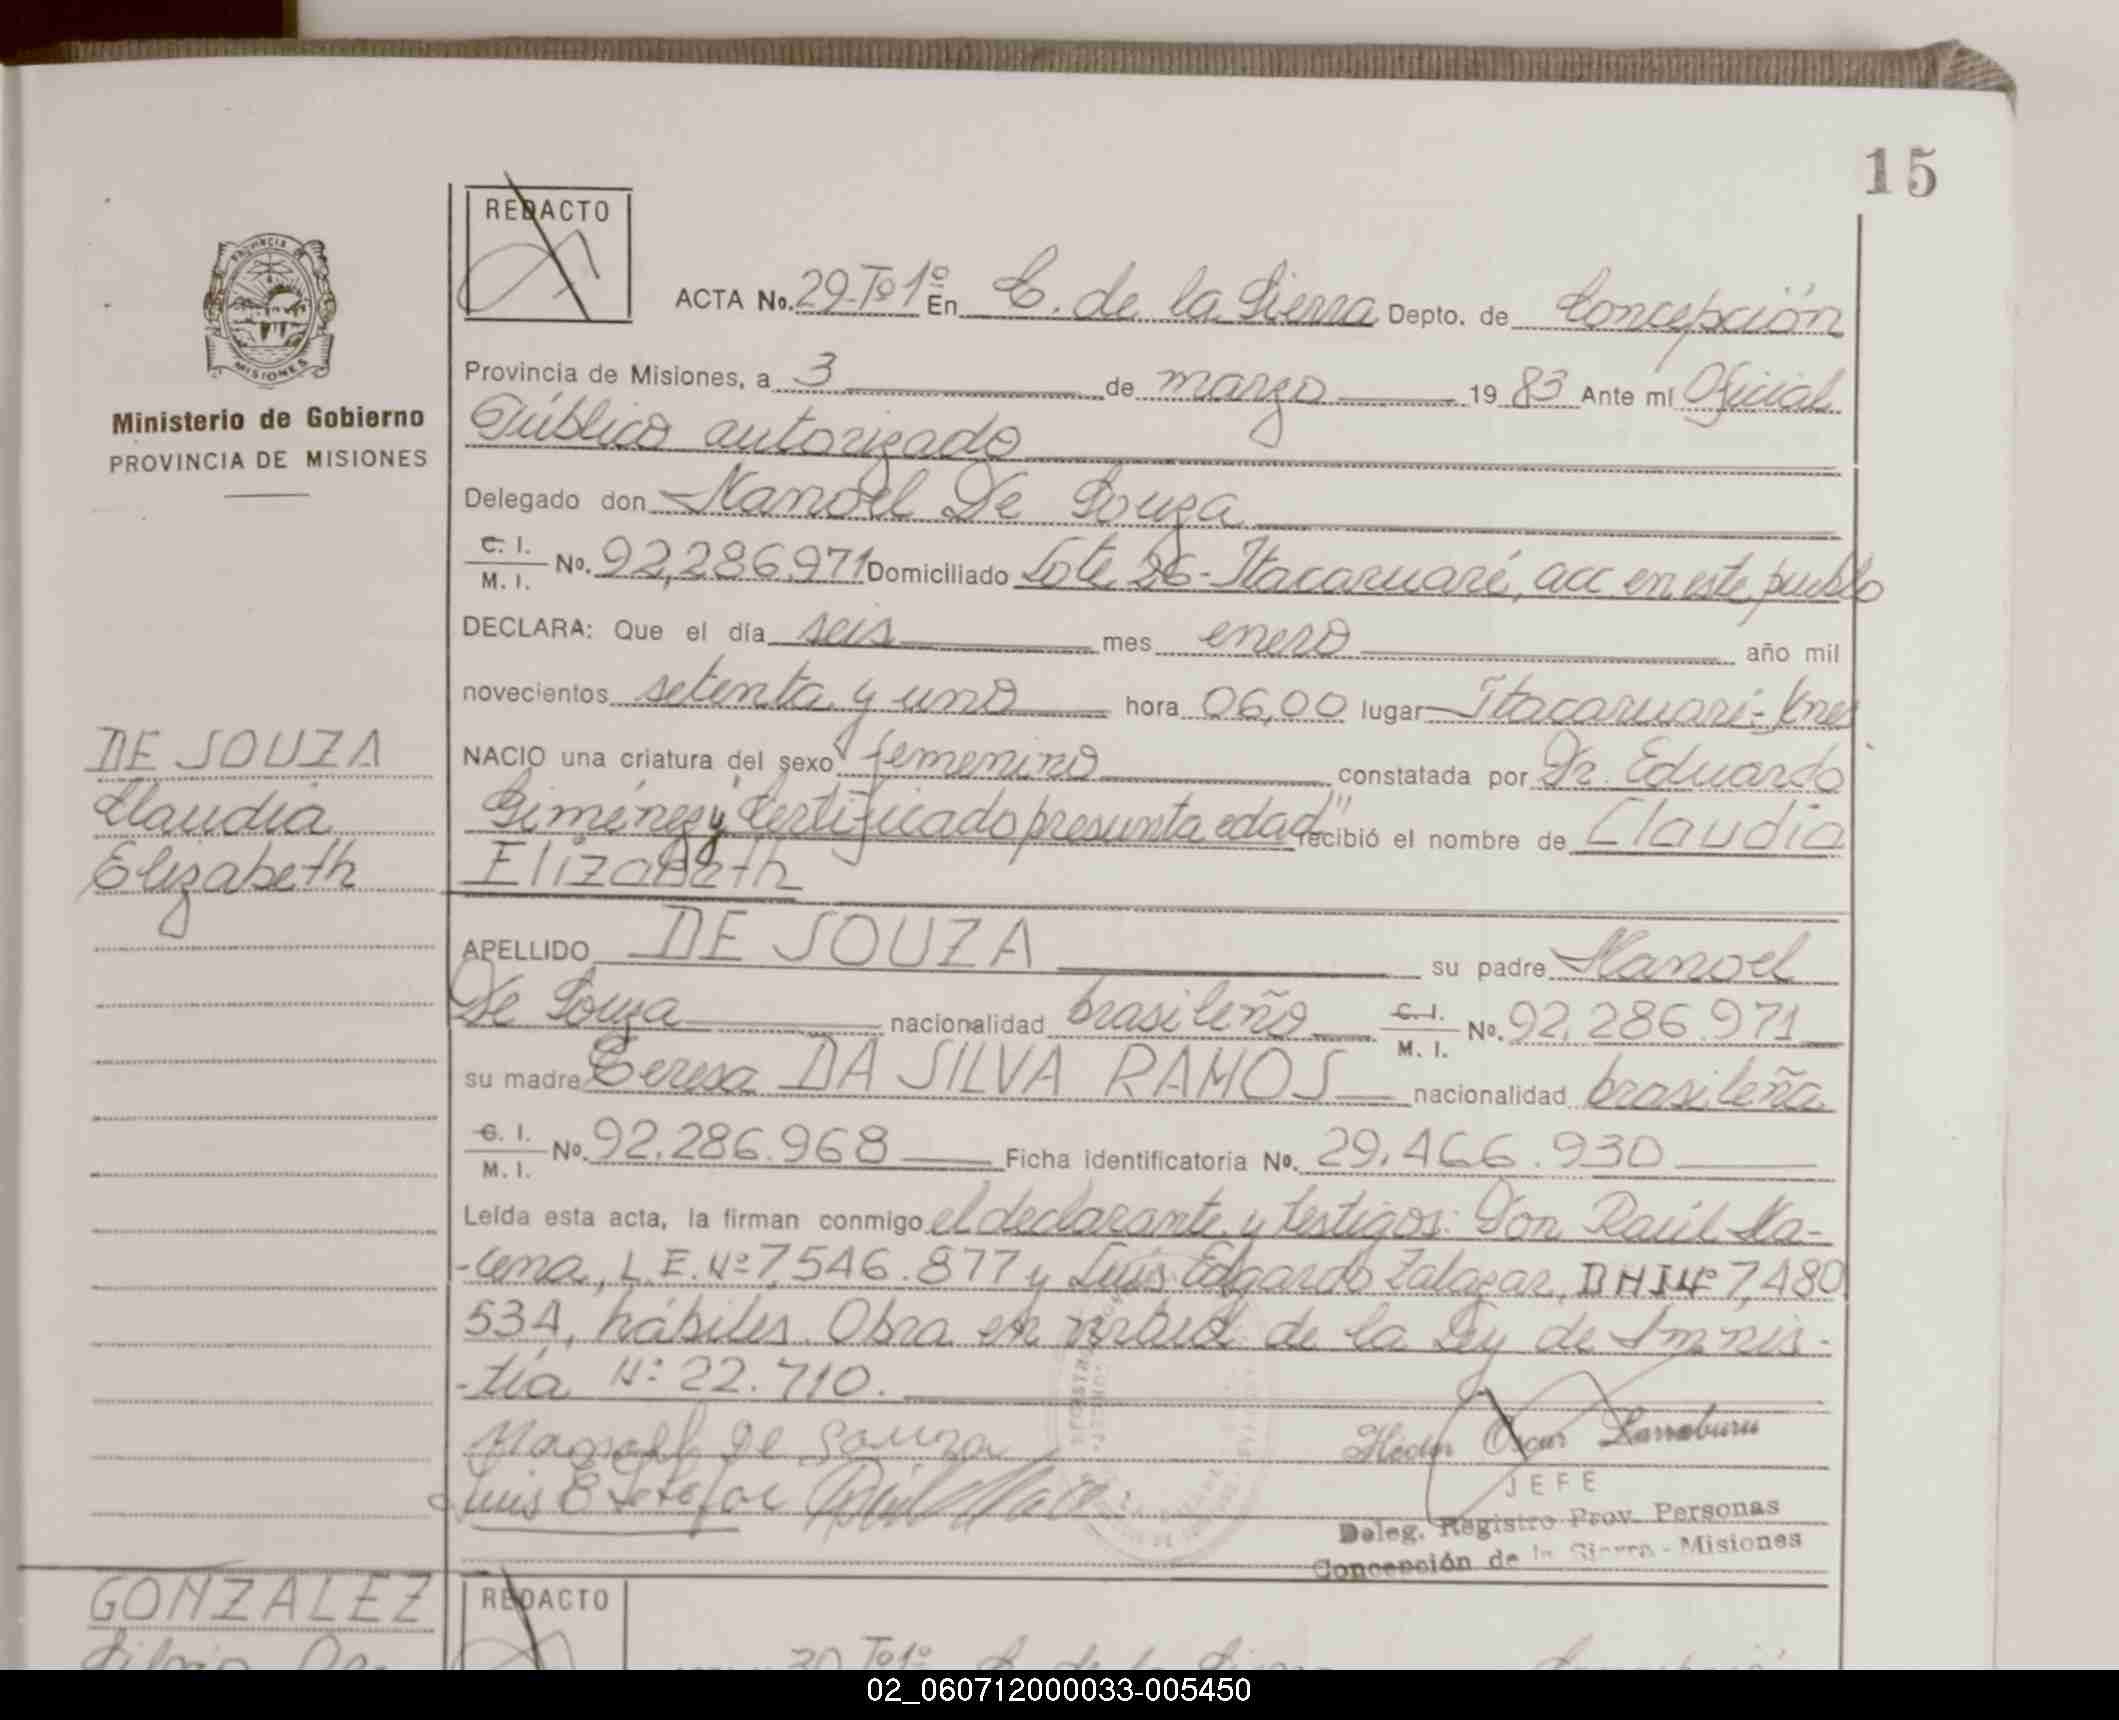 15
REDACTO
ACTA No. 29-Tº1º En C. de la Sierra Depto. de Concepción
Provincia de Misiones, a 3 de marzo 1983 Ante mí Oficial
Público autorizado
Delegado don Manoel De Souza
C. I. / M. I. No. 92,286.971 Domiciliado Lote 26-Itacaruaré, acc en este pueblo
DECLARA: Que el día seis mes enero año mil
novecientos setenta y uno hora 06,00 lugar Itacaruaré-Mnes
NACIO una criatura del sexo femenino constatada por Dr. Eduardo
Giménez y "Certificado presunta edad" recibió el nombre de Claudia
Elizabeth
APELLIDO DE SOUZA su padre Manoel
De Souza nacionalidad brasileño C. I. / M. I. No. 92.286.971
su madre Teresa DA SILVA RAMOS nacionalidad brasileña
C. I. / M. I. No. 92.286.968 Ficha identificatoria No. 29.466.930
Leída esta acta, la firman conmigo el declarante y testigos: Don Raúl Ma-
-cena, L.E. Nº 7,546.877 y Luis Edgardo Zalazar, DNI Nº 7,480
534, hábiles. Obra en virtud de la Ley de Amnis-
-tía Nº 22.710.
Manoel De Souza
Héctor Oscar Larraburu
JEFE
Deleg. Registro Prov. Personas
Concepción de la Sierra - Misiones
PROVINCIA
MISIONES
Ministerio de Gobierno
PROVINCIA DE MISIONES
DE SOUZA
Claudia
Elizabeth
GONZALEZ
REDACTO
30 Tº1º
02_060712000033-005450